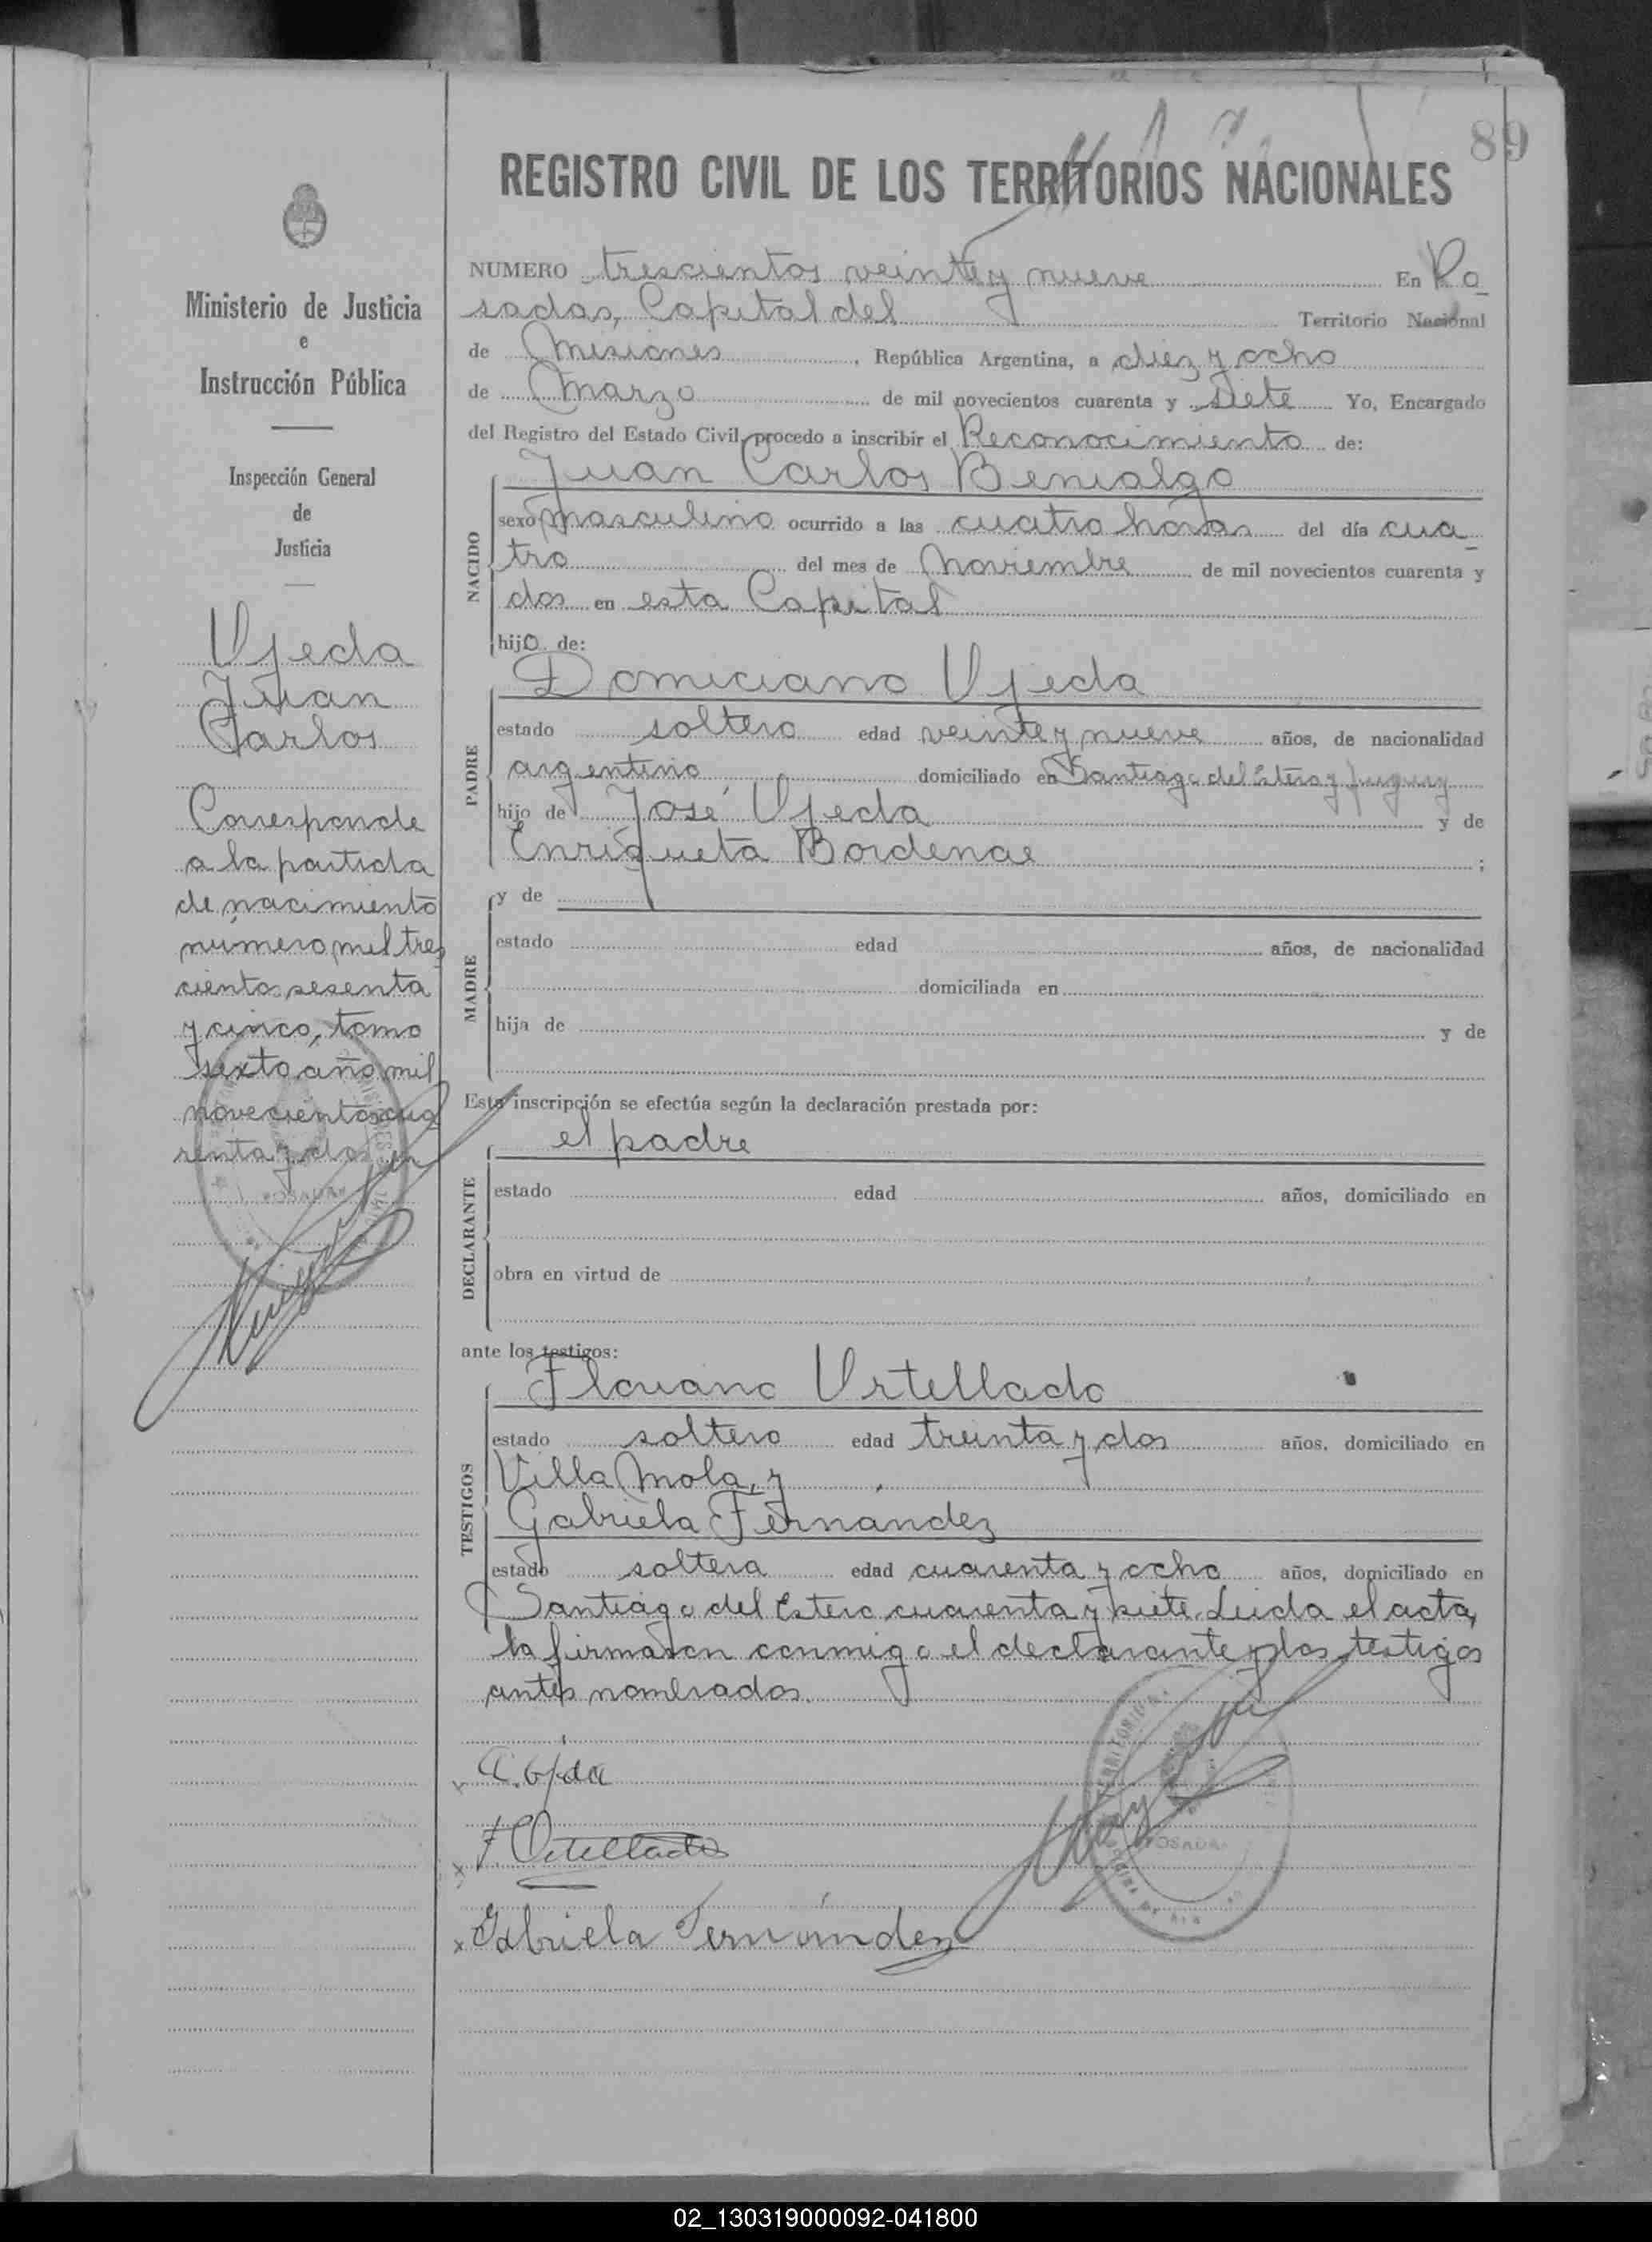 89
REGISTRO CIVIL DE LOS TERRITORIOS NACIONALES
Ministerio de Justicia
e
Instrucción Pública
Inspección General
de
Justicia
Ojeda
Juan
Carlos
Corresponde
a la partida
de nacimiento
número mil tres
cientos sesenta
y cinco, tomo
sexto año mil
novecientos cua
renta y dos
NUMERO trescientos veinte y nueve En Po
sadas, Capital del Territorio Nacional
de Misiones, República Argentina, a diez y ocho
de Marzo de mil novecientos cuarenta y siete Yo, Encargado
del Registro del Estado Civil, procedo a inscribir el Reconocimiento de:
NACIDO
Juan Carlos Benialgo
sexo masculino ocurrido a las cuatro horas del día cua
tro del mes de Noviembre de mil novecientos cuarenta y
dos en esta Capital
hijo de:
PADRE
Domiciano Ojeda
estado soltero edad veinte y nueve años, de nacionalidad
argentino domiciliado en Santiago del Estero y Jujuy
hijo de José Ojeda y de
Enriqueta Bordenae;
MADRE
y de
estado edad años, de nacionalidad
domiciliada en
hija de y de
Esta inscripción se efectúa según la declaración prestada por:
DECLARANTE
el padre
estado edad años, domiciliado en
obra en virtud de
ante los testigos:
TESTIGOS
Floriano Ortellado
estado soltero edad treinta y dos años, domiciliado en
Villa Mola, y
Gabriela Fernandez
estado soltera edad cuarenta y ocho años, domiciliado en
Santiago del Estero cuarenta y siete. Leida el acta,
la firmaron conmigo el declarante y los testigos
antes nombrados.
F. Ortellado
POSADAS
Gabriela Fernández
02_130319000092-041800